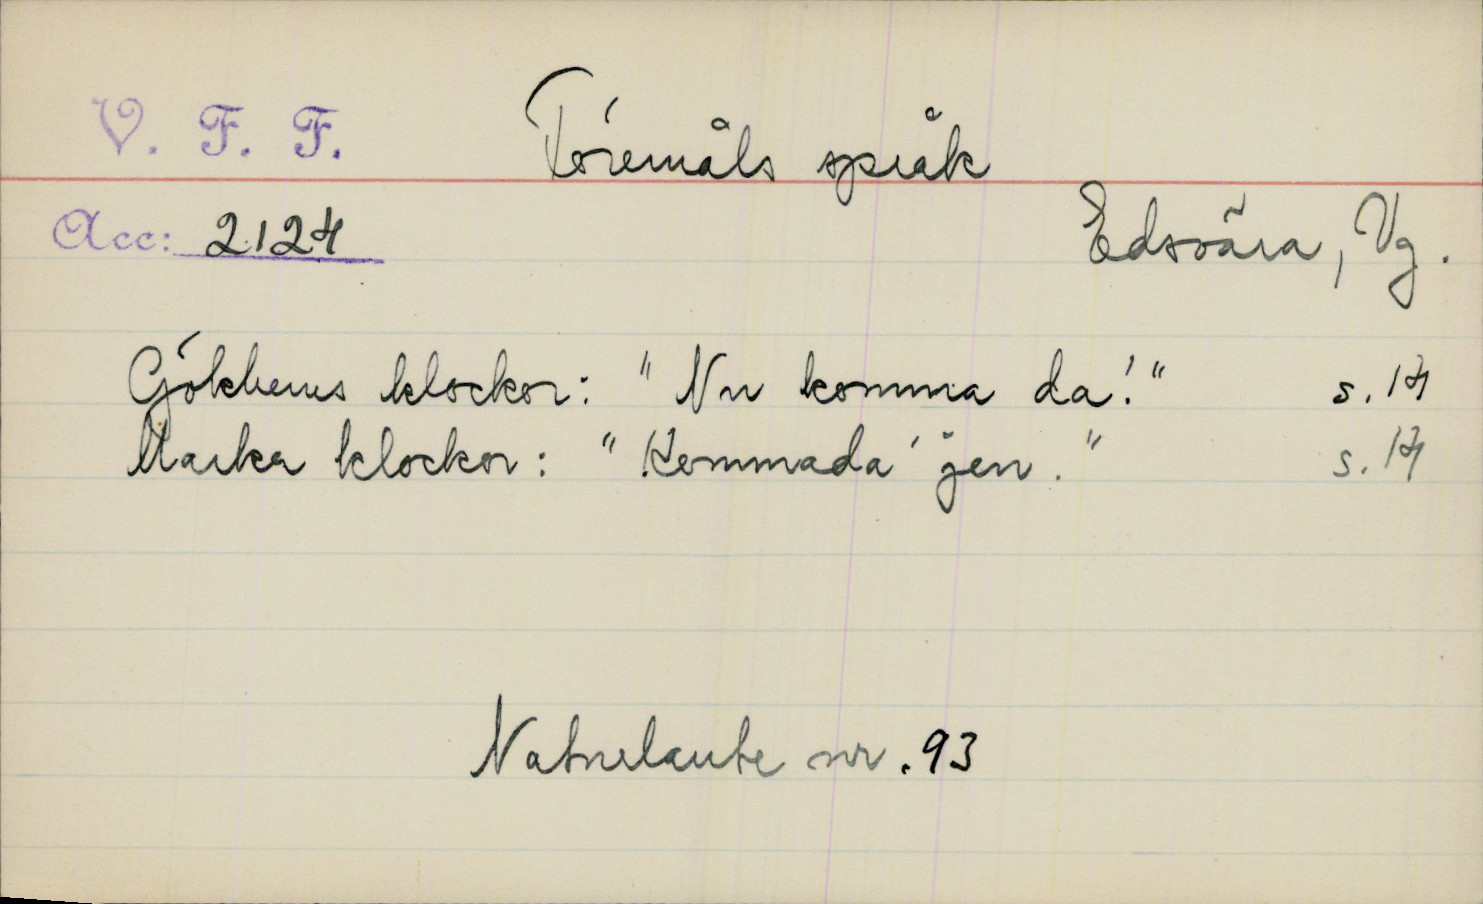 V. F. F.
Föremåls språk
Acc: 2124
Edsvära, Vg.
Gökhems klockor: "Nu komma da!" s. 14
Marka klockor: "Kommada' jen." s. 14
Naturlaute nr. 93